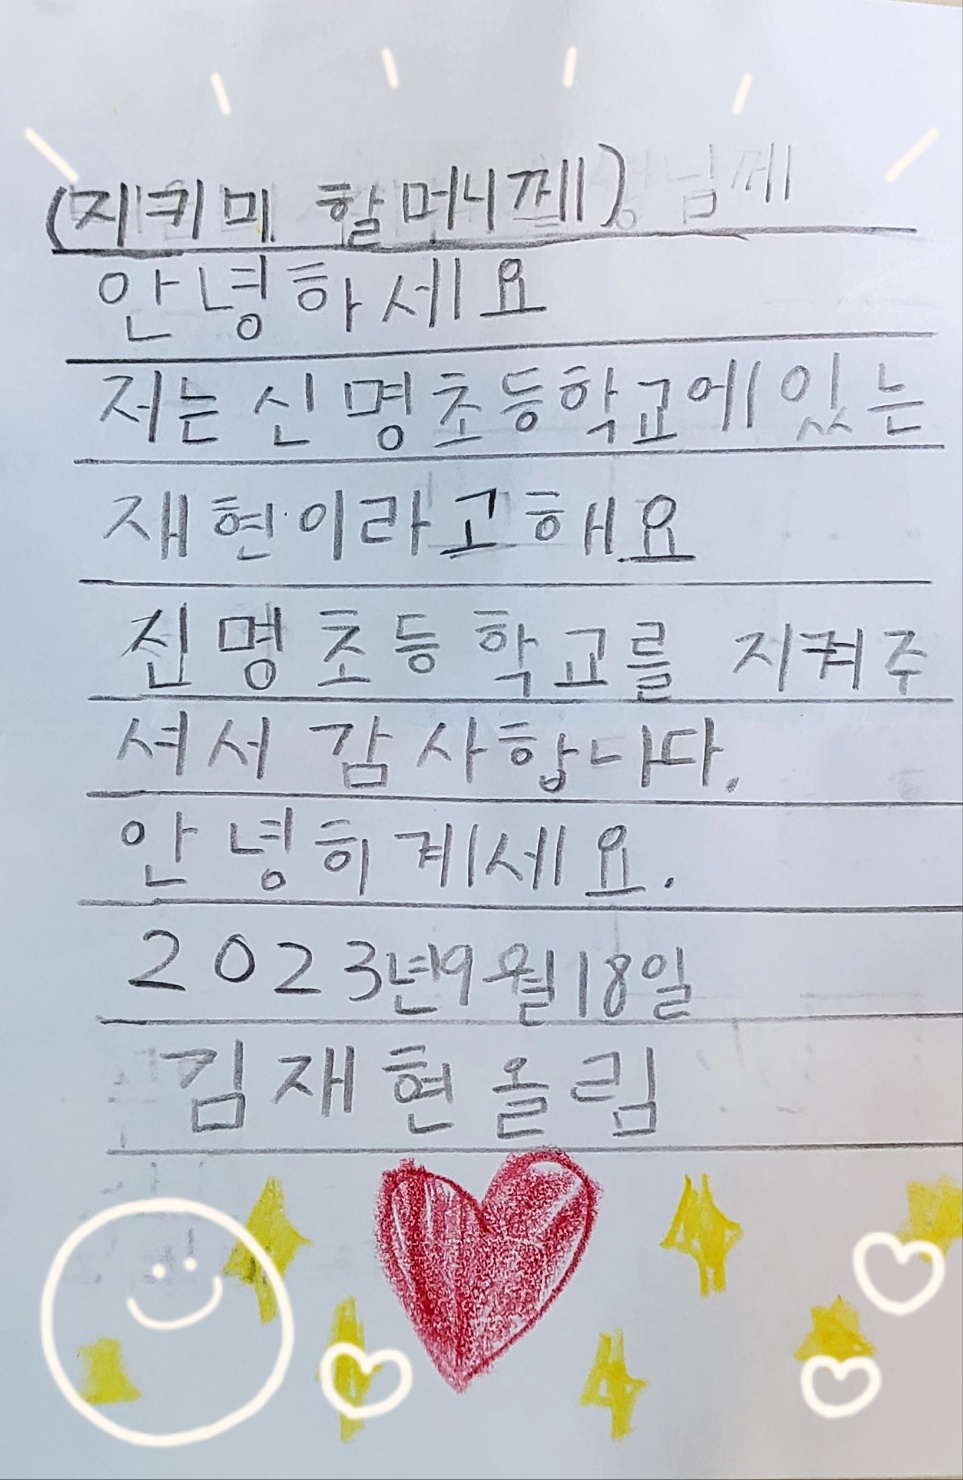 (지키미 할머니께)
안녕하세요
저는 신명초등학교에 있는
재현이라고해요
신명초등학교를 지켜주
셔서 감사합니다.
안녕히계세요.
2023년9월18일
김재현올림